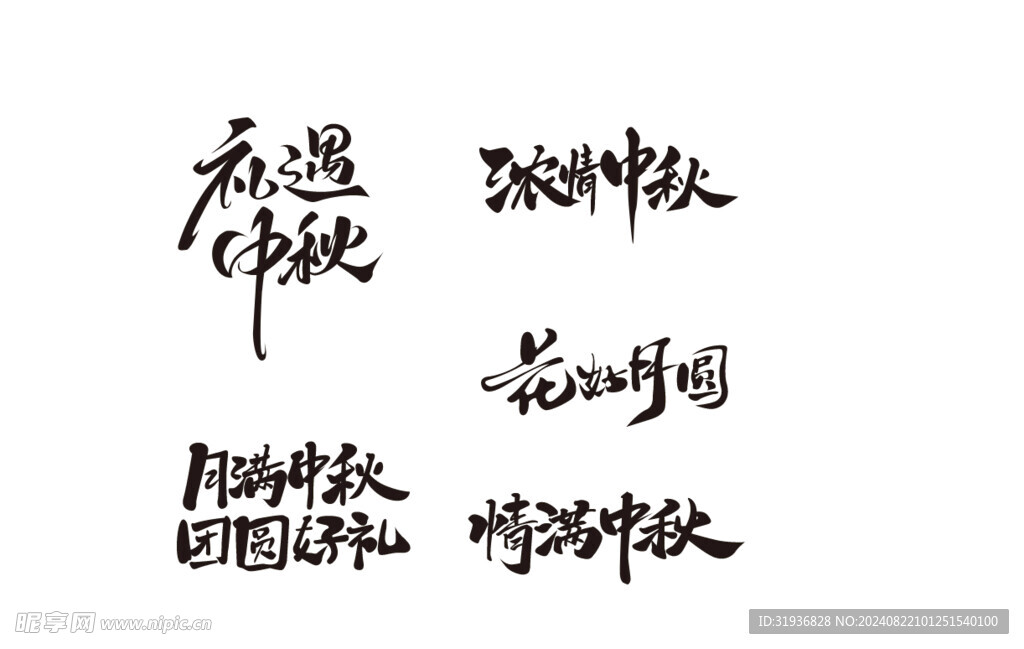 礼遇
中秋
浓情中秋
花好月圆
月满中秋
团圆好礼
情满中秋
昵享网 www.nipic.cn
ID:31936828 NO:20240822101251540100